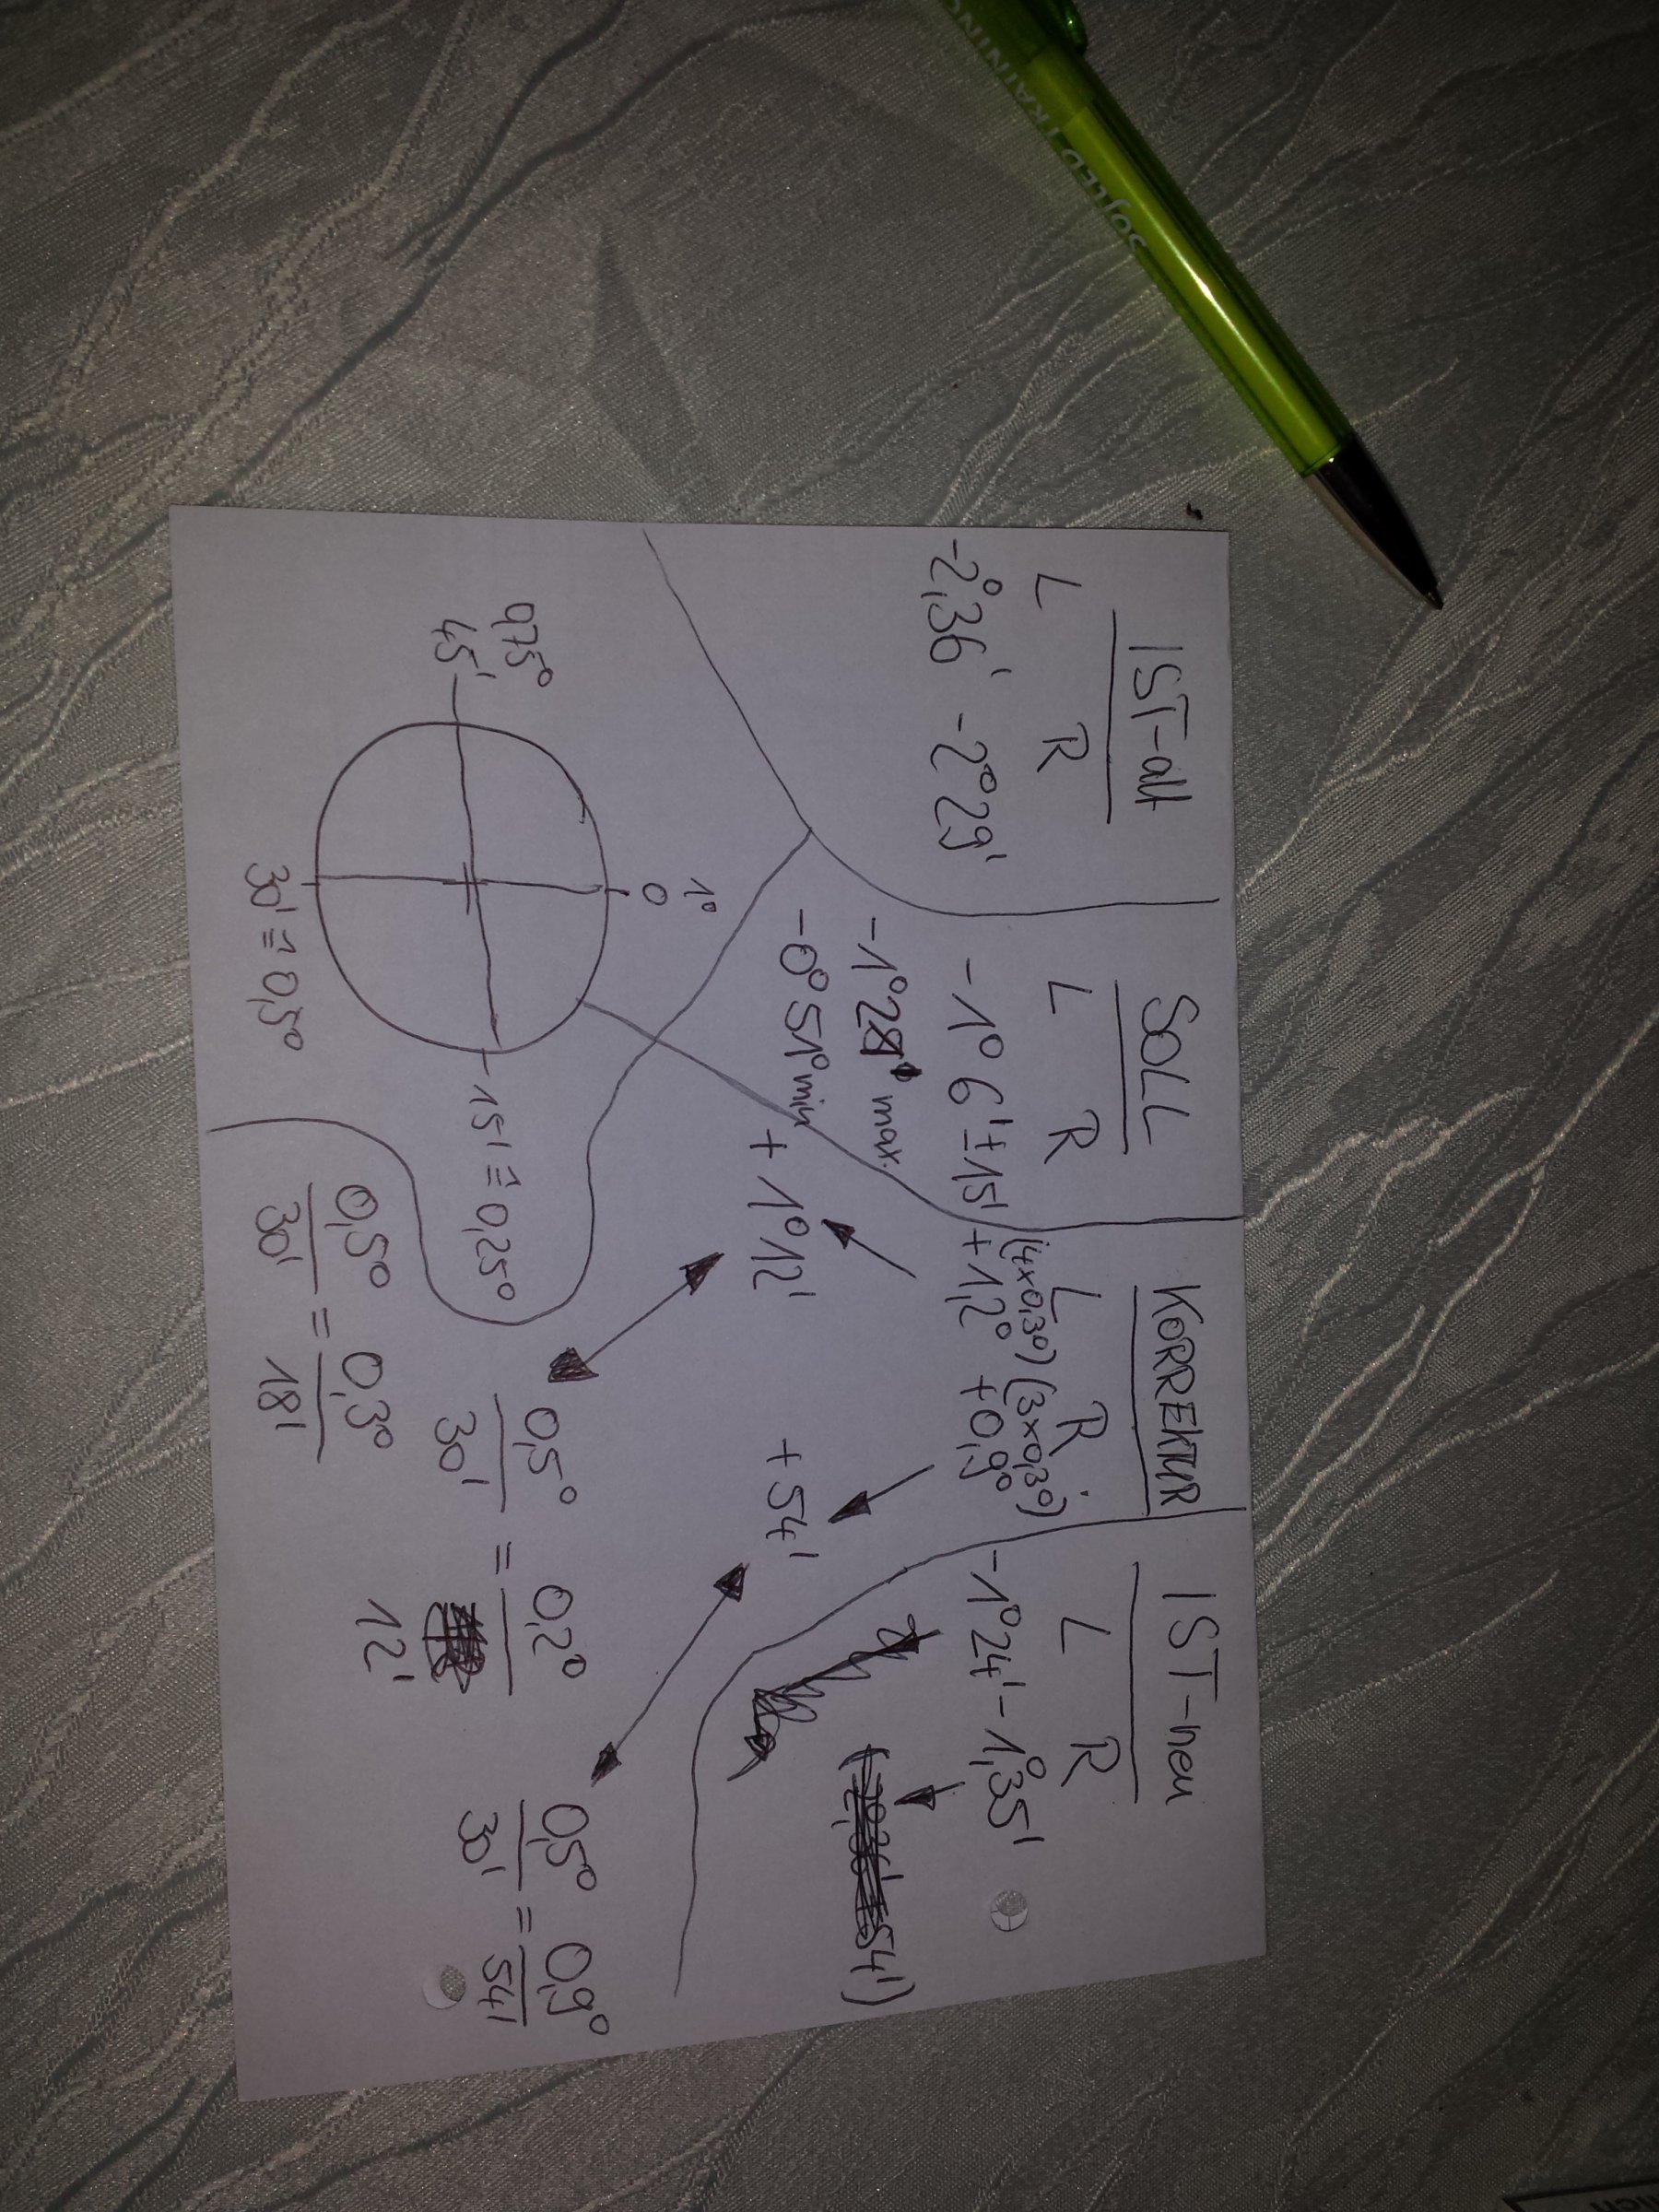 IST-alt
L R
-2°,36' -2°29'
SOLL
L R
-1°6'±15'
-1°28' max.
-0°51° min
KORREKTUR
L R
(4x0,3°) (3x0,3°)
+1,2° +0,9°
+1°12' +54'
IST-neu
L R
-1°24' -1°,35'
54')
1°
0
0,75°
45'
15' ≙ 0,25°
30' ≙ 0,5°
0,5° = 0,3°
30' 18'
0,5° = 0,2°
30' 12'
0,5° = 0,9°
30' 54'
SOJLED TRAINING